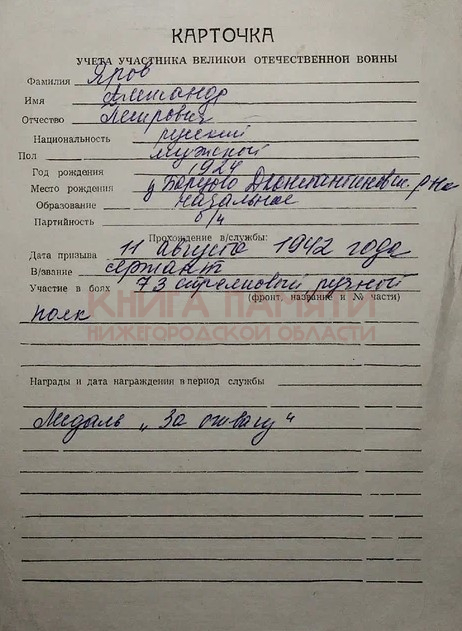 КАРТОЧКА
УЧЕТА УЧАСТНИКА ВЕЛИКОЙ ОТЕЧЕСТВЕННОЙ ВОЙНЫ
Фамилия Яров
Имя Александр
Отчество Петрович
Национальность русский
Пол мужской
Год рождения 1924
Место рождения д
Образование начальное
Партийность б/п
Прохождение в/службы:
Дата призыва 11 августа 1942 года
В/звание сержант
Участие в боях 73 стрелковый
(фронт, название и № части)
полк
КНИГА ПАМЯТИ
НИЖЕГОРОДСКОЙ ОБЛАСТИ
Награды и дата награждения в период службы
Медаль „За отвагу"